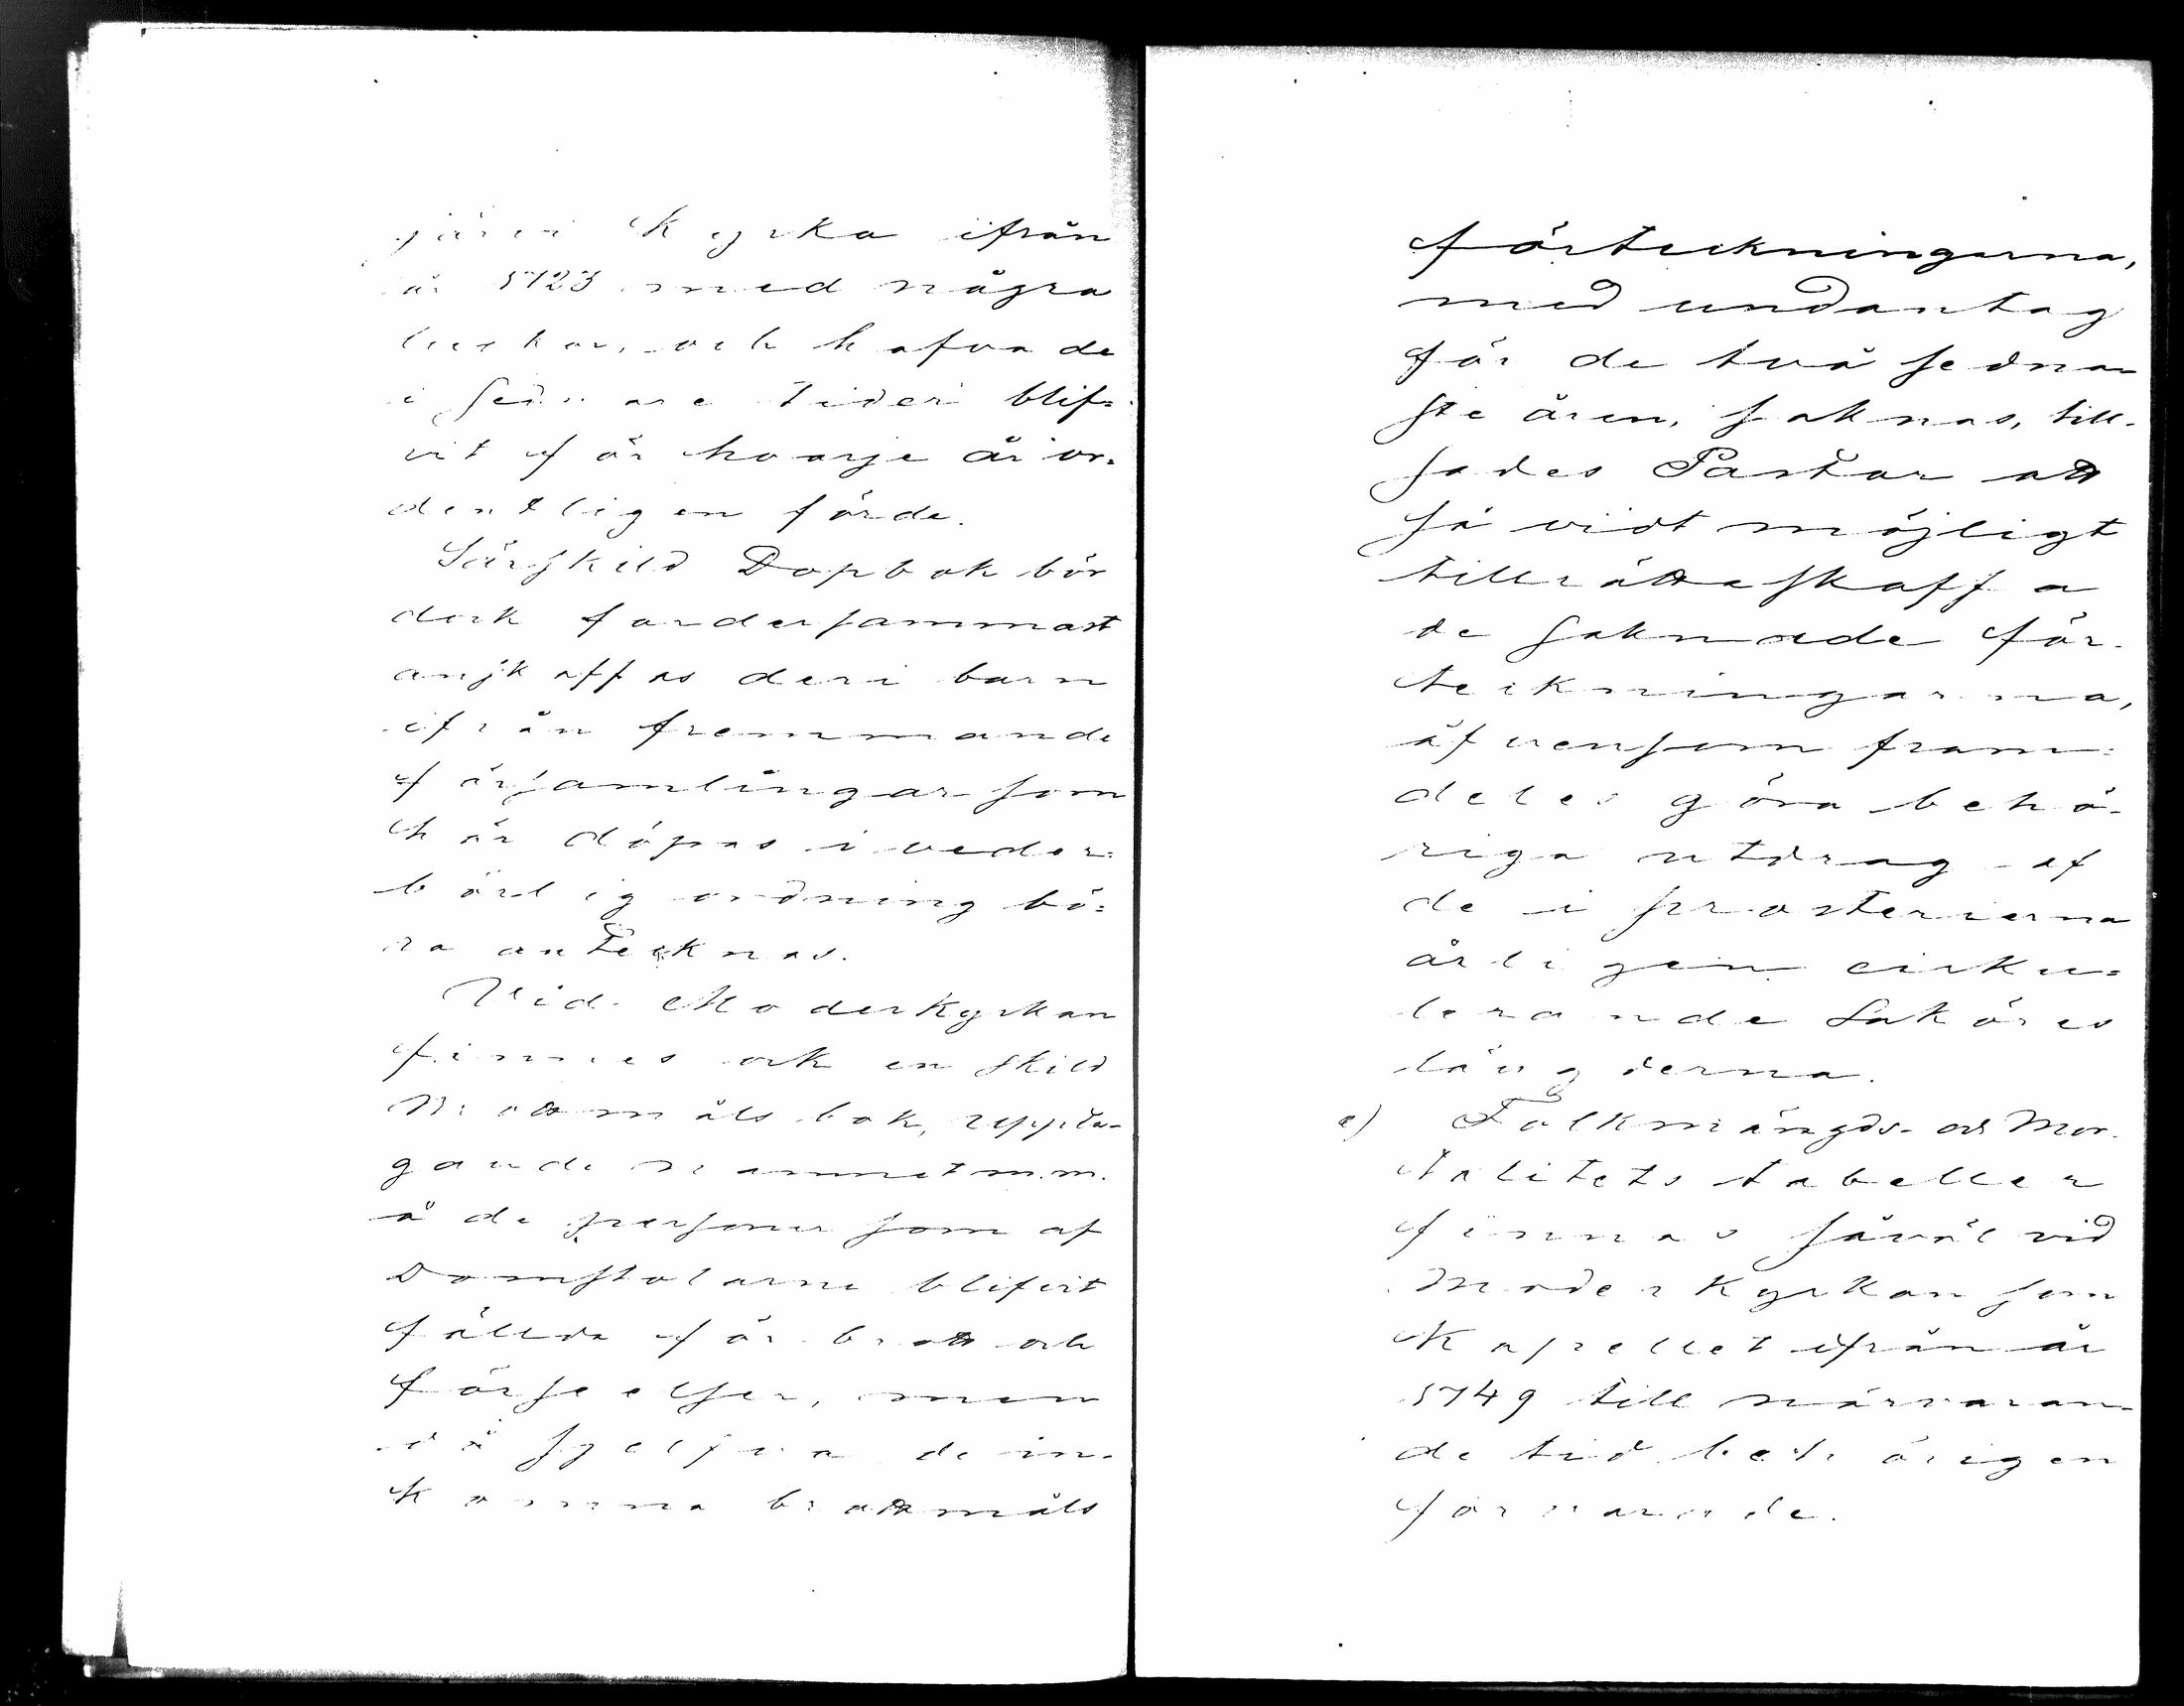 järvi Kyrka ifrån
år 1723 med några
luckor, och hafva de
i sednare tider blif=
vit för hvarje år or=
dentligen förde.
Särskild Dopbok bör
dock fordersammast
anskaffas deri barn
ifrån fremmande
församlingar som
här döpas i veder=
börlig ordning bö=
ra antecknas.
Vid Moderkyrkan
finnes ock en skild
Brottmåls bok, uppta-
gande namnet m.m.
å de personer som af
Domstolarne blifvit
fällda för brott och
förseelser, men
då sjelfva de in-
komna brottmåls
förteckningarna,
med undantag
för de två sedna-
ste åren, saknas, till-
sades Pastor att
så vidt möjligt
tillrättaskaffa
de saknade för-
teckningarna,
äfvensom fram=
deles göra behö-
riga utdrag af
de i prosterierna
årligen cirku=
lerande Saköres
längderna.
e) Folkmängds- och Mor-
talitets tabeller
finnas såväl vid
Moderkyrkan som
Kapellet ifrån år
1749 till närvaran-
de tid behörigen
förvarade.